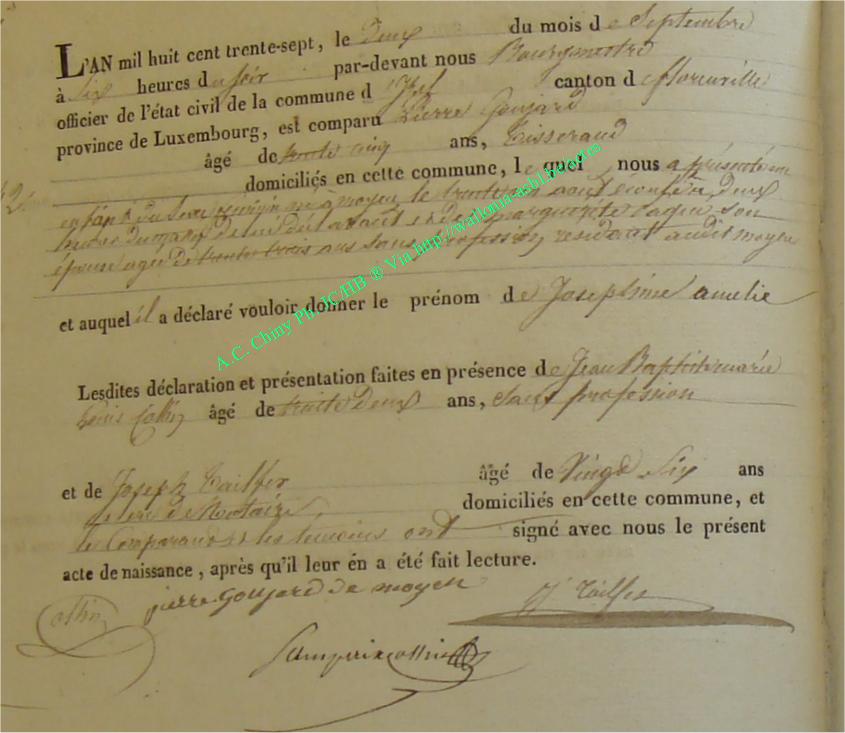 L'AN mil huit cent trente-sept, le Deux du mois de Septembre
à Six heures du Soir par-devant nous Bourgmestre
officier de l'état civil de la commune d'Izel canton de florenville
province de Luxembourg, est comparu Pierre Goujard
âgé de trente cinq ans, Tisserand
domiciliés en cette commune, lequel nous a présenté un
enfant du Sexe né à moyen le aout à Deux
heures du matin de lui déclarant et de marguerite son
épouse agée de trente trois ans sans profession residant audit moyen
et auquel il a déclaré vouloir donner le prénom de Josephine amelie
Lesdites déclaration et présentation faites en présence de Jean Baptiste marie
Collin âgé de trente Deux ans, Sans profession
et de Joseph Tailfer âgé de Vingt Six ans
clerc de Notaire, domiciliés en cette commune, et
les Comparant et les temoins ont signé avec nous le présent
acte de naissance, après qu'il leur en a été fait lecture.
Collin pierre Goujard de moyen J Tailfer
A.C. Chiny Ph. JC/HB ® Via http://wallonia-asbl.be/actes